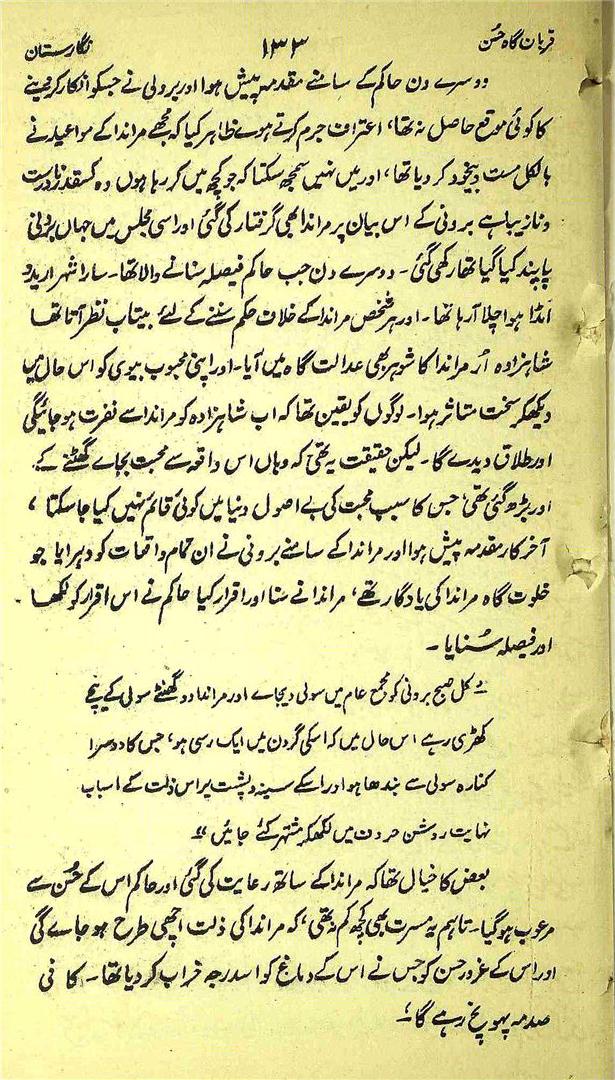 قربان گاہ حُسن ۱۳۳ نگارستان
دوسرے دن حاکم کے سامنے مقدمہ پیش ہوا اور برونی نے جسکو انکار کر دینے
کا کوئی موقع حاصل نہ تھا، اعتراف جرم کرتے ہوے ظاہر کیا کہ مجھے مراندا کے مواعید نے
بالکل مست و بیخود کر دیا تھا، اور میں نہیں سمجھ سکتا کہ جو کچھ میں کر رہا ہوں وہ کسقدر نادرست
و نازیبا ہے برونی کے اس بیان پر مراندا بھی گرفتار کی گئی اور اسی مجلس میں جہاں برونی
پابند کیا گیا تھا رکھی گئی۔ دوسرے دن جب حاکم فیصلہ سنانے والا تھا۔ سارا شہر
اُمڈا ہوا چلا آ رہا تھا۔ اور ہر شخص مراندا کے خلاف حکم سننے کے لئے بیتاب نظر آتا تھا
شاہزادہ اُر مراندا کا شوہر بھی عدالت گاہ میں آیا۔ اور اپنی محبوب بیوی کو اس حال میں
دیکھکر سخت متاثر ہوا۔ لوگوں کو یقین تھا کہ اب شاہزادہ کو مراندا سے نفرت ہو جائیگی
اور طلاق دیدے گا۔ لیکن حقیقت یہ تھی کہ وہاں اس واقعہ سے محبت بجاے گھٹنے کے
اور بڑھ گئی تھی جس کا سبب محبت کی بے اصول دنیا میں کوئی قائم نہیں کیا جا سکتا،
آخر کار مقدمہ پیش ہوا اور مراندا کے سامنے برونی نے ان تمام واقعات کو دہرایا جو
خلوت گاہ مراندا کی یادگار تھے، مراندا نے سنا اور اقرار کیا حاکم نے اس اقرار کو لکھا۔
اور فیصلہ سُنایا۔
"کل صبح برونی کو مجمع عام میں سولی دیجاے اور مراندا دو گھنٹے سولی کے نیچے
کھڑی رہے اس حال میں کہ اسکی گردن میں ایک رسی ہو، جس کا دوسرا
کنارہ سولی سے بندھا ہو اور اسکے سینہ و پشت پر اس ذلت کے اسباب
نہایت روشن حروف میں لکھکر مشتہر کئے جائیں"
بعض کا خیال تھا کہ مراندا کے ساتھ رعایت کی گئی اور حاکم اس کے حُسن سے
مرعوب ہو گیا۔ تاہم یہ مسرت بھی کچھ کم نہ تھی، کہ مراندا کی ذلت اچھی طرح ہو جاے گی
اور اس کے غرور حسن کو جس نے اس کے دماغ کو اسدرجہ خراب کر دیا تھا۔ کافی
صدمہ پہونچ رہے گا؛